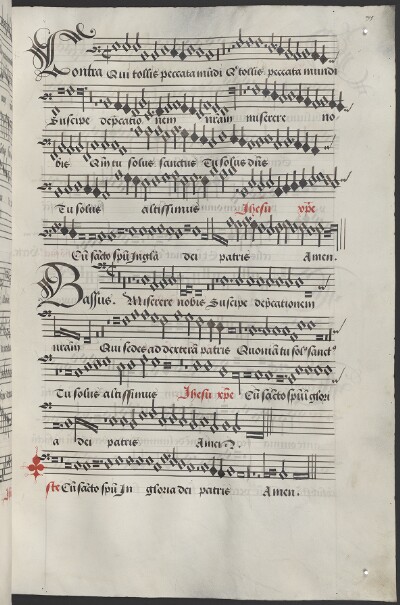 Contra Qui tollis peccata mũdi Q tollis peccata mundi
Suscipe dep̃catio nem nr̃am miserere no-
bis Qm̃ tu solus sanctus Tu solus dñs
Tu solus altissimus Jhesu xp̃e
Cũ sãcto spũ in gl̃a dei patris Amen.
Bassus. Miserere nobis Suscipe dep̃cationem
nr̃am Qui sedes ad dexterã patris Quoniã tu sol9 sanct9
Tu solus altissimus Jhesu xp̃e Cũ sãcto spũ ĩ glori
a dei patris Amen.
Cũ sãcto spũ Jn gloria dei patris Amen.